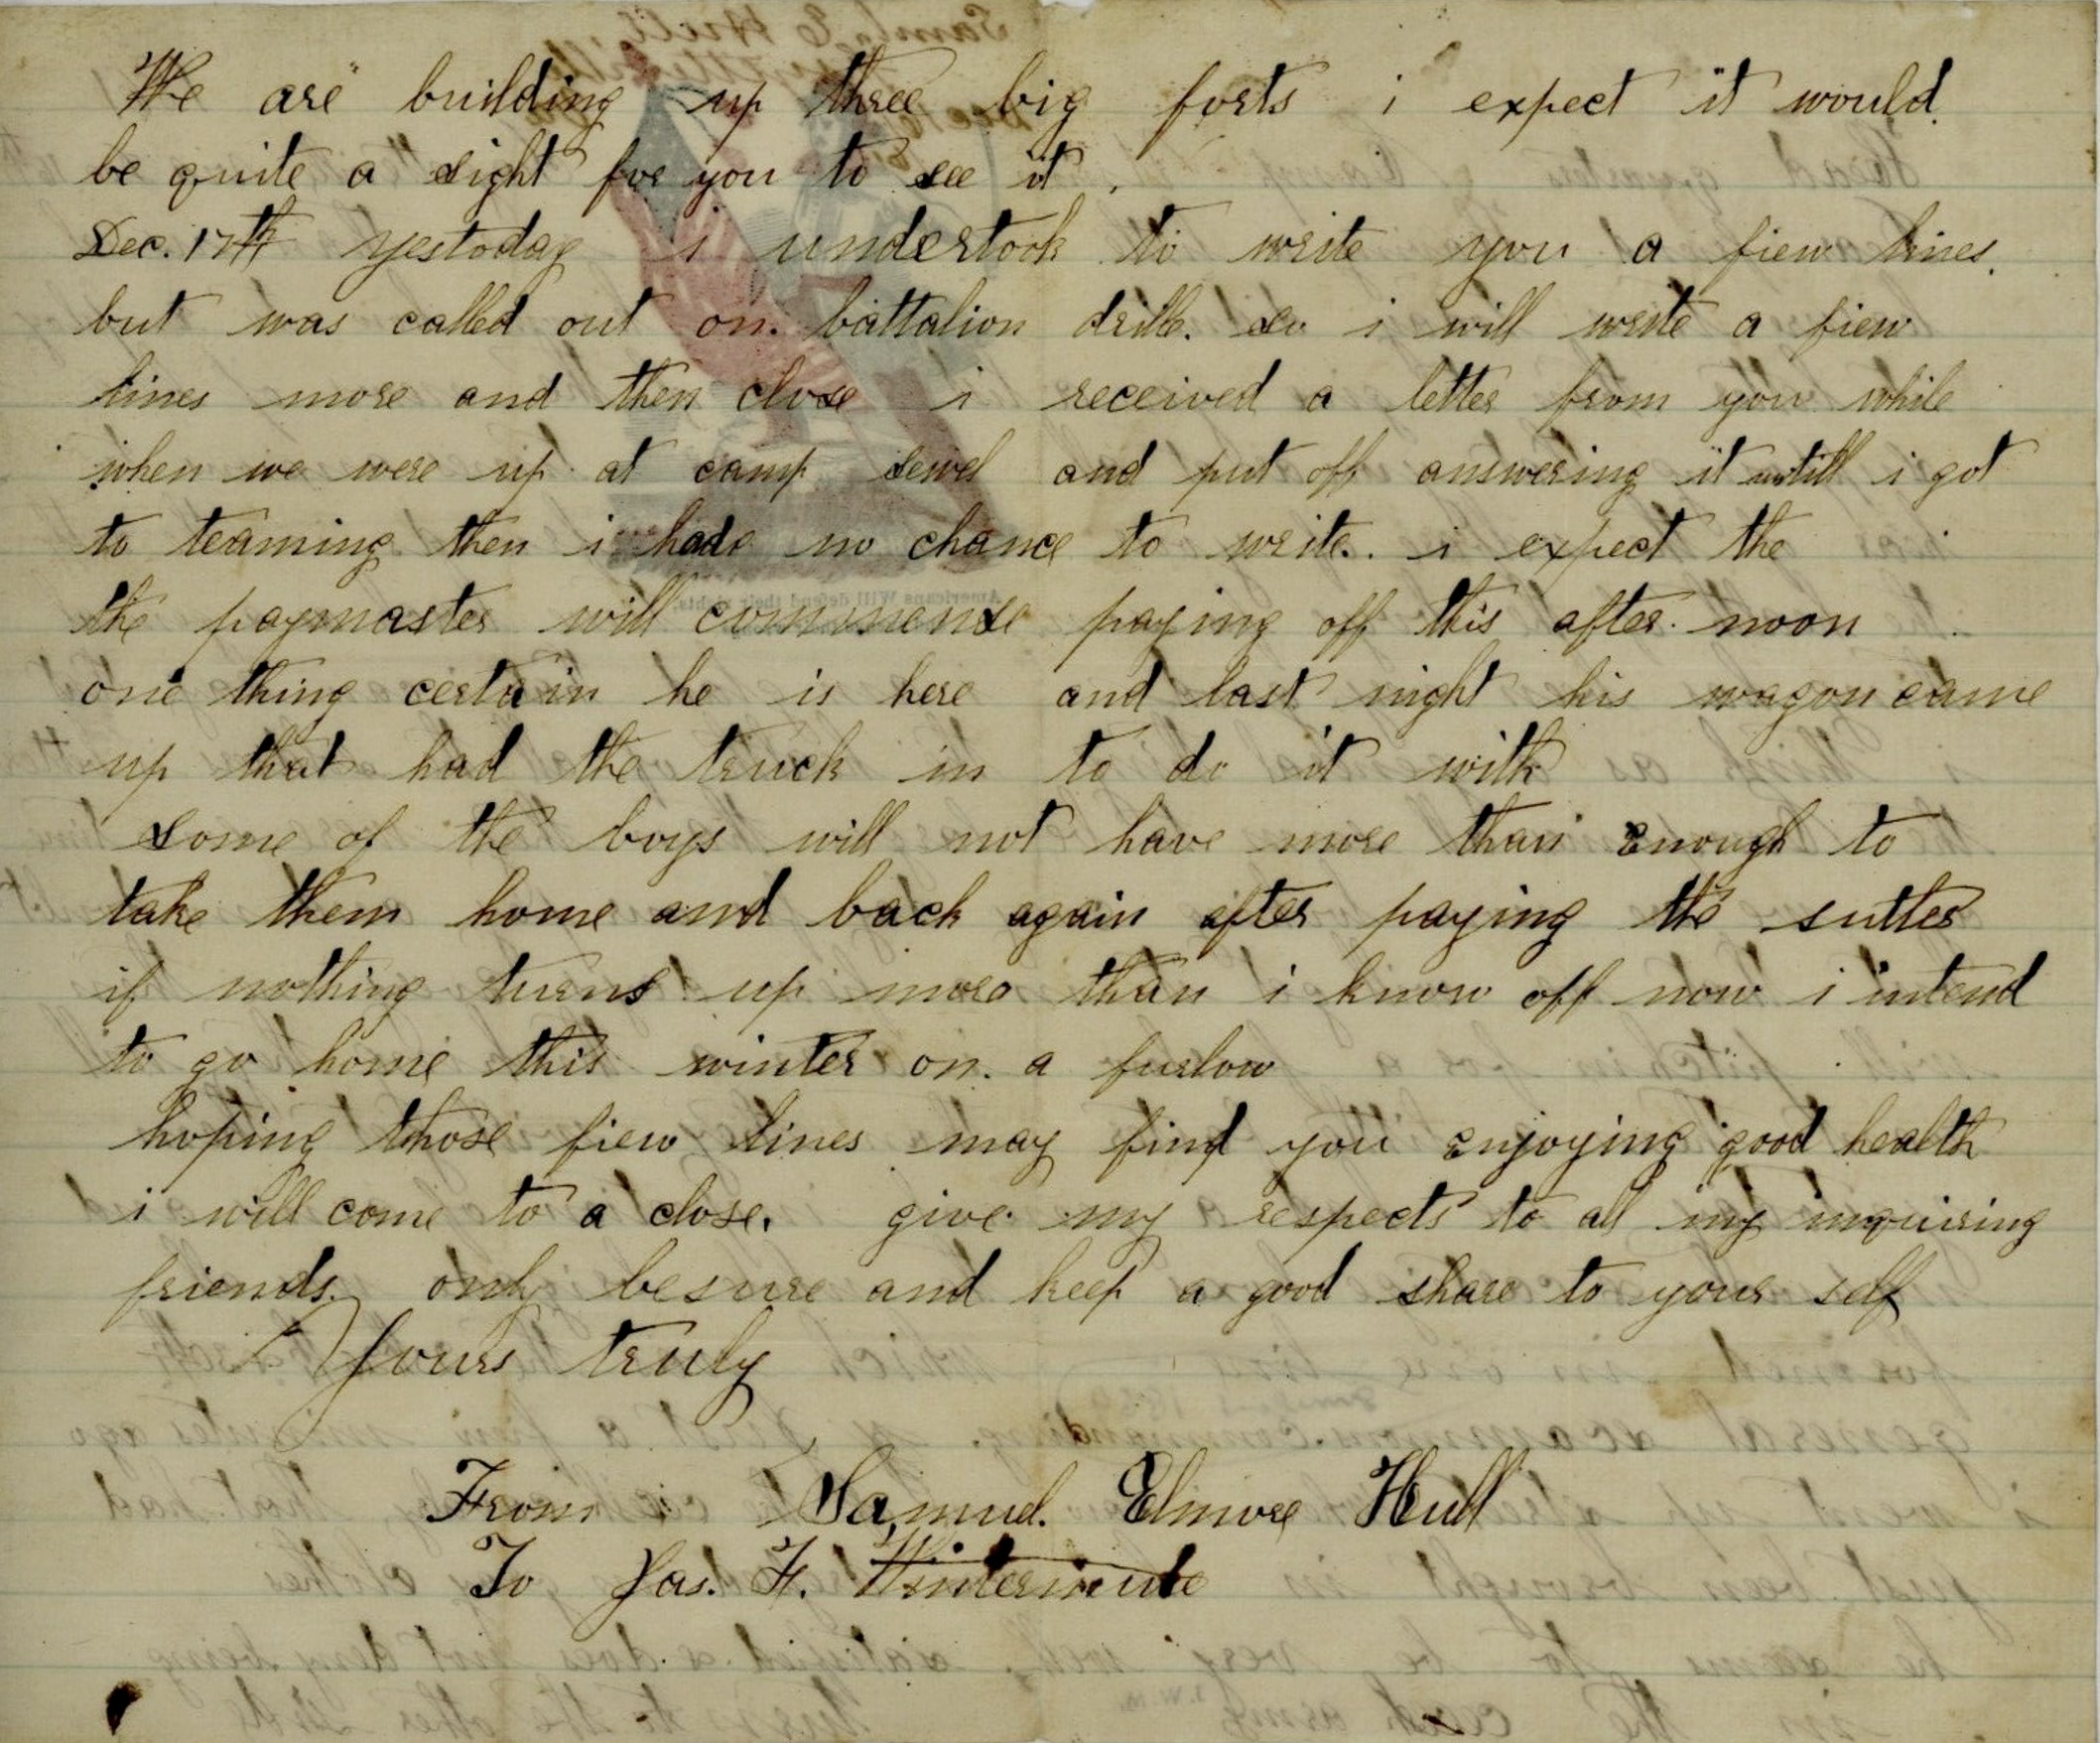 We are building up three big forts i expect it would
be quite a sight for you to see it.
Dec. 17th yestoday i undertook to write you a fiew lines.
but was called out on. battalion drill. so i will write a fiew
lines more and then close i received a letter from you while
when we were up at camp sewel and put off answering it untill i got
to teaming then i hade no chance to write. i expect the
the paymaster will commense paying off this after noon
one thing certain he is here and last night his wagon came
up that had the truck in to do it with
some of the boys will not have more than enough to
take them home and back again after paying the sutler
if nothing turns up more than i know off now i intend
to go home this winter on. a furlow
hoping those fiew lines may find you enjoying good health
i will come to a close. give my respects to all my inquiring
friends. only besure and keep a good share to your self
Yours truly
From Samuel. Elmore Hull
To Jas. H. Wintermute